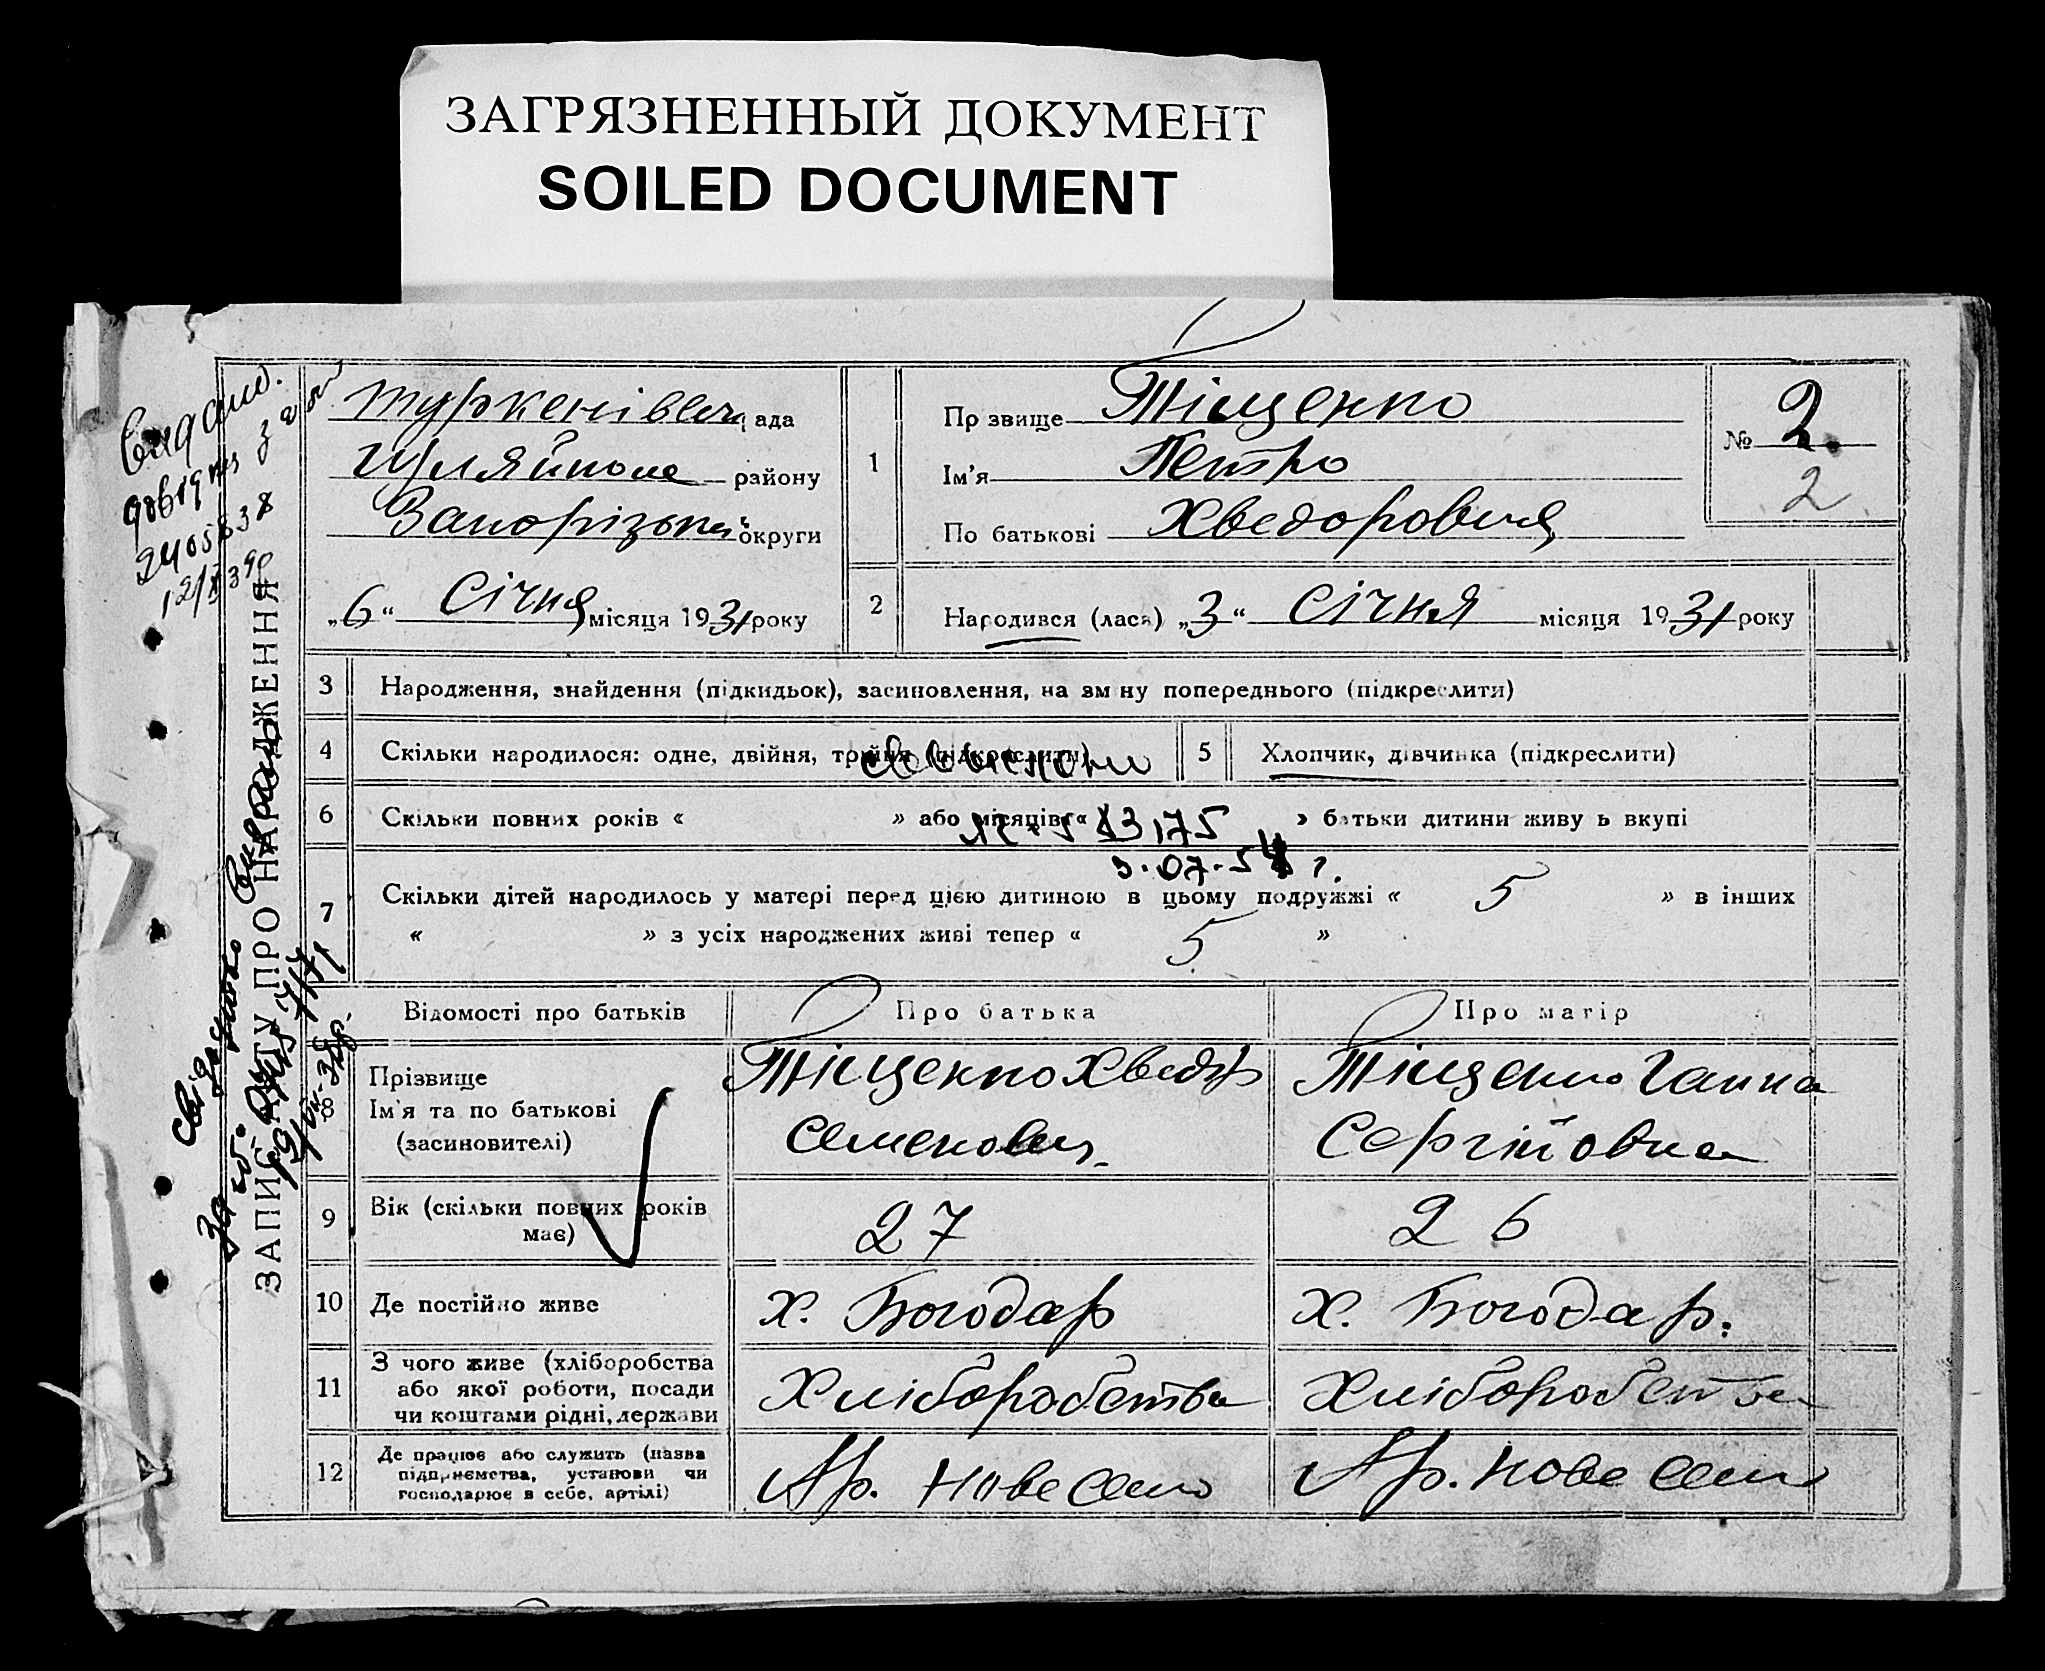 ЗАГРЯЗНЕННЫЙ ДОКУМЕНТ
SOILED DOCUMENT
ЗАПИС АКТУ ПРО НАРОДЖЕННЯ
Видано.
2405638
Туркенівськ ада
Гуляйполе району
Запорізької округи
„6“ Січня місяця 1931 року
1
Пр звище Тіщенко
Ім'я Петро
По батькові Хведорович
№ 2.
2
2
Народився (лася) „3“ Січня місяця 1931 року
3
Народження, знайдення (підкидьок), засиновлення, на зм ну попереднього (підкреслити)
4
Скільки народилося: одне, двійня, трійня (підкреслити)
5
Хлопчик, дівчинка (підкреслити)
6
Скільки повних років « » або місяців « » батьки дитини живу ь вкупі
3.07.54 г.
7
Скільки дітей народилось у матері перед цією дитиною в цьому подружжі « 5 » в інших
« » з усіх народжених живі тепер « 5 »
Відомості про батьків
Про батька
Про матір
8
Прізвище
Ім'я та по батькові
(засиновителі)
Тіщенко Хведір
Семенович
Тіщенко Ганна
Сергійовна
9
Вік (скільки повних років
має)
27
26
10
Де постійно живе
х. Богодар
х. Богодар.
11
З чого живе (хліборобства
або якої роботи, посади
чи коштами рідні, держави
Хліборобства
Хліборобства
12
Де працює або служить (назва
підприємства, установи чи
господарює в себе, артілі)
Ар. Нове Село
Ар. Нове Село